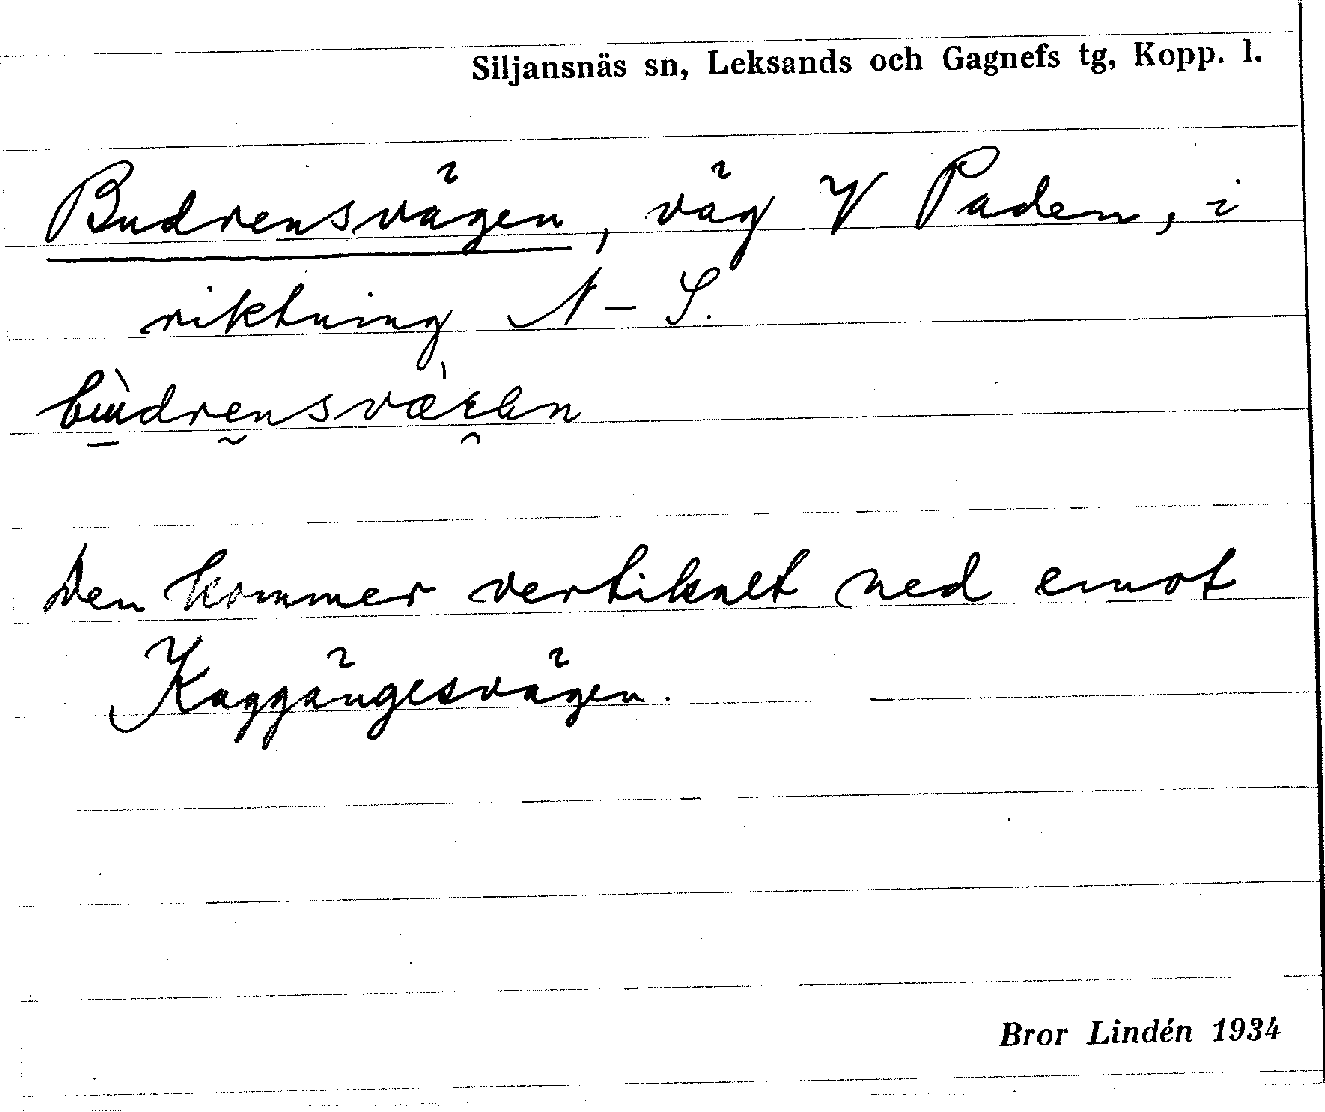 Siljansnäs sn, Leksands och Gagnefs tg, Kopp. l.
Budrensvägen, väg V Paden, i
riktning N – S.
Den kommer vertikalt ned emot
Kaggängesvägen.
Bror Lindén 1934